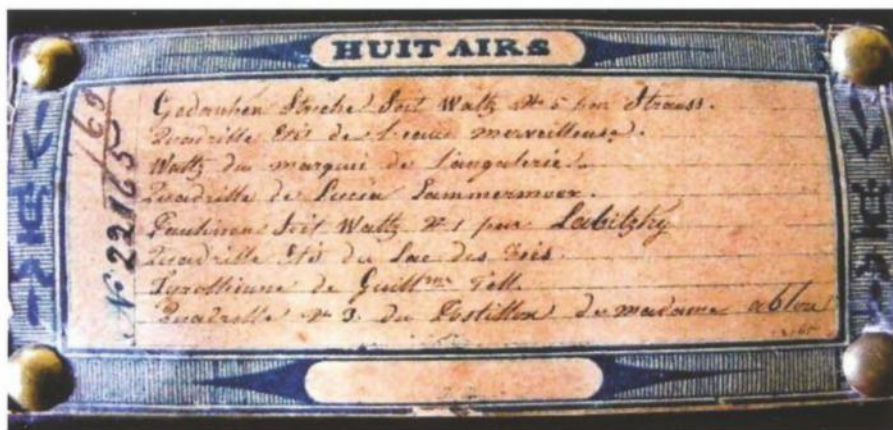 HUIT AIRS
Gedanken Striche Soit Waltz N° 5 par Strauss.
Quadrille Été de l'eau merveilleuse.
Waltz du marqui de
Quadrille de Lucia Lammermoor.
Soit Waltz N° 1 par Labitzky
Quadrille Été du Lac des
Tyrolhienne de Guillme Tell.
Quadrille N° 3 du Postillon de madame ablou
N° 22165
169